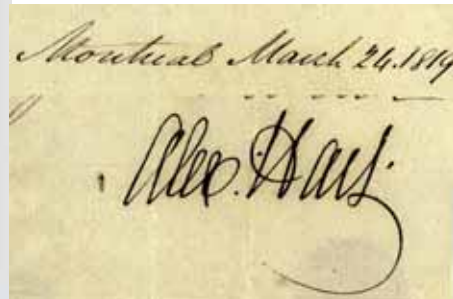 Montreal March 24. 1819
Alex. Hart.